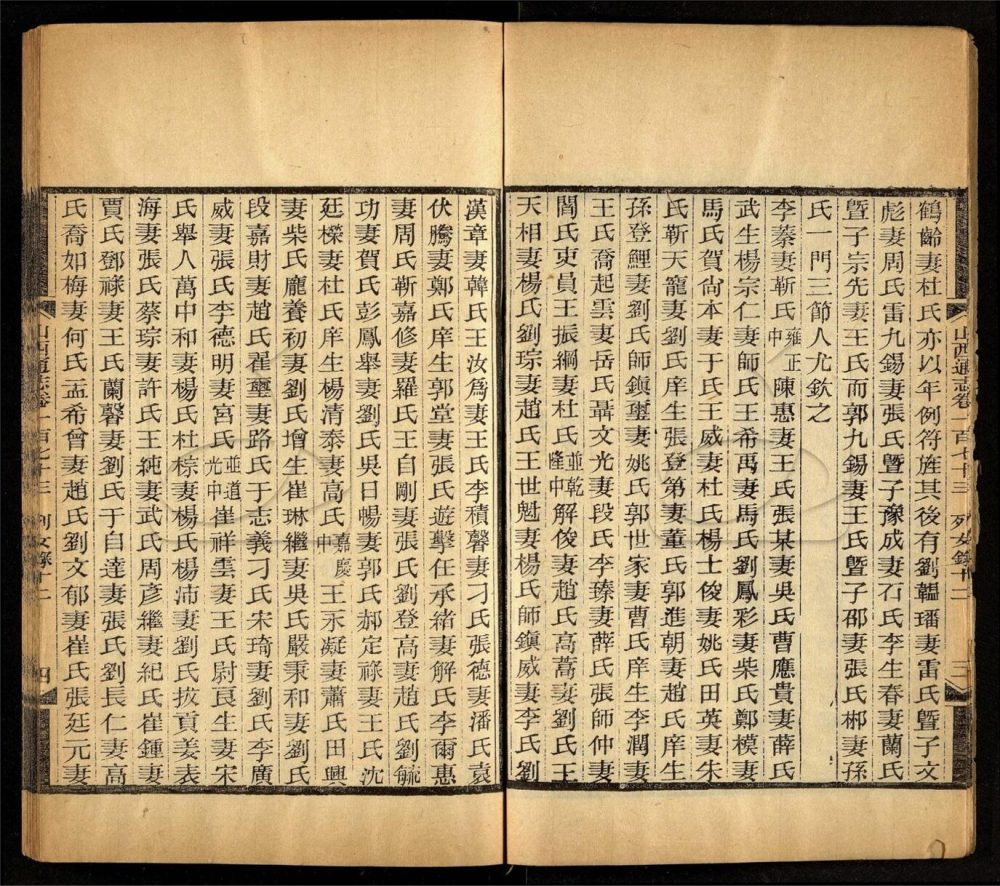 鶴齡妻杜氏亦以年例符旌其後有劉韞璠妻雷氏曁子文
彪妻周氏雷九錫妻張氏曁子豫成妻石氏李生春妻蘭氏
曁子宗先妻王氏而郭九錫妻王氏曁子邵妻張氏郴妻孫
氏一門三節人尤欽之
李蓁妻靳氏雍正中陳惠妻王氏張某妻吳氏曹應貴妻薛氏
武生楊宗仁妻師氏王希禹妻馬氏劉鳳彩妻柴氏鄭模妻
馬氏賀尙本妻于氏王威妻杜氏楊士俊妻姚氏田英妻朱
氏靳天寵妻劉氏庠生張登第妻董氏郭進朝妻趙氏庠生
孫登鯉妻劉氏師鎭璽妻姚氏郭世家妻曹氏庠生李潤妻
王氏喬起雲妻岳氏聶文光妻段氏李臻妻薛氏張師仲妻
閻氏吏員王振綱妻杜氏並乾隆中解俊妻趙氏高蒿妻劉氏王
天相妻楊氏劉琮妻趙氏王世魁妻楊氏師鎭威妻李氏劉
山西通志卷一百七十三 列女錄十二 三
漢章妻韓氏王汝爲妻王氏李積馨妻刁氏張德妻潘氏袁
伏騰妻鄭氏庠生郭堂妻張氏遊擊任承緒妻解氏李爾惠
妻周氏靳嘉修妻羅氏王自剛妻張氏劉登高妻趙氏劉毓
功妻賀氏彭鳳舉妻劉氏吳日暢妻郭氏郝定祿妻王氏沈
廷櫟妻杜氏庠生楊清泰妻高氏嘉慶中王永凝妻蕭氏田興
妻柴氏龐養初妻劉氏增生崔琳繼妻吳氏嚴秉和妻劉氏
段嘉財妻趙氏翟璽妻路氏于志義刁氏宋琦妻劉氏李廣
威妻張氏李德明妻宮氏並道光中崔祥雲妻王氏尉良生妻宋
氏舉人萬中和妻楊氏杜棕妻楊氏楊沛妻劉氏拔貢姜表
海妻張氏蔡琮妻許氏王純妻武氏周彥繼妻紀氏崔鍾妻
賈氏鄧祿妻王氏蘭馨妻劉氏于自達妻張氏劉長仁妻高
氏喬如梅妻何氏孟希曾妻趙氏劉文郁妻崔氏張廷元妻
山西通志卷一百七十三 列女錄十二 四